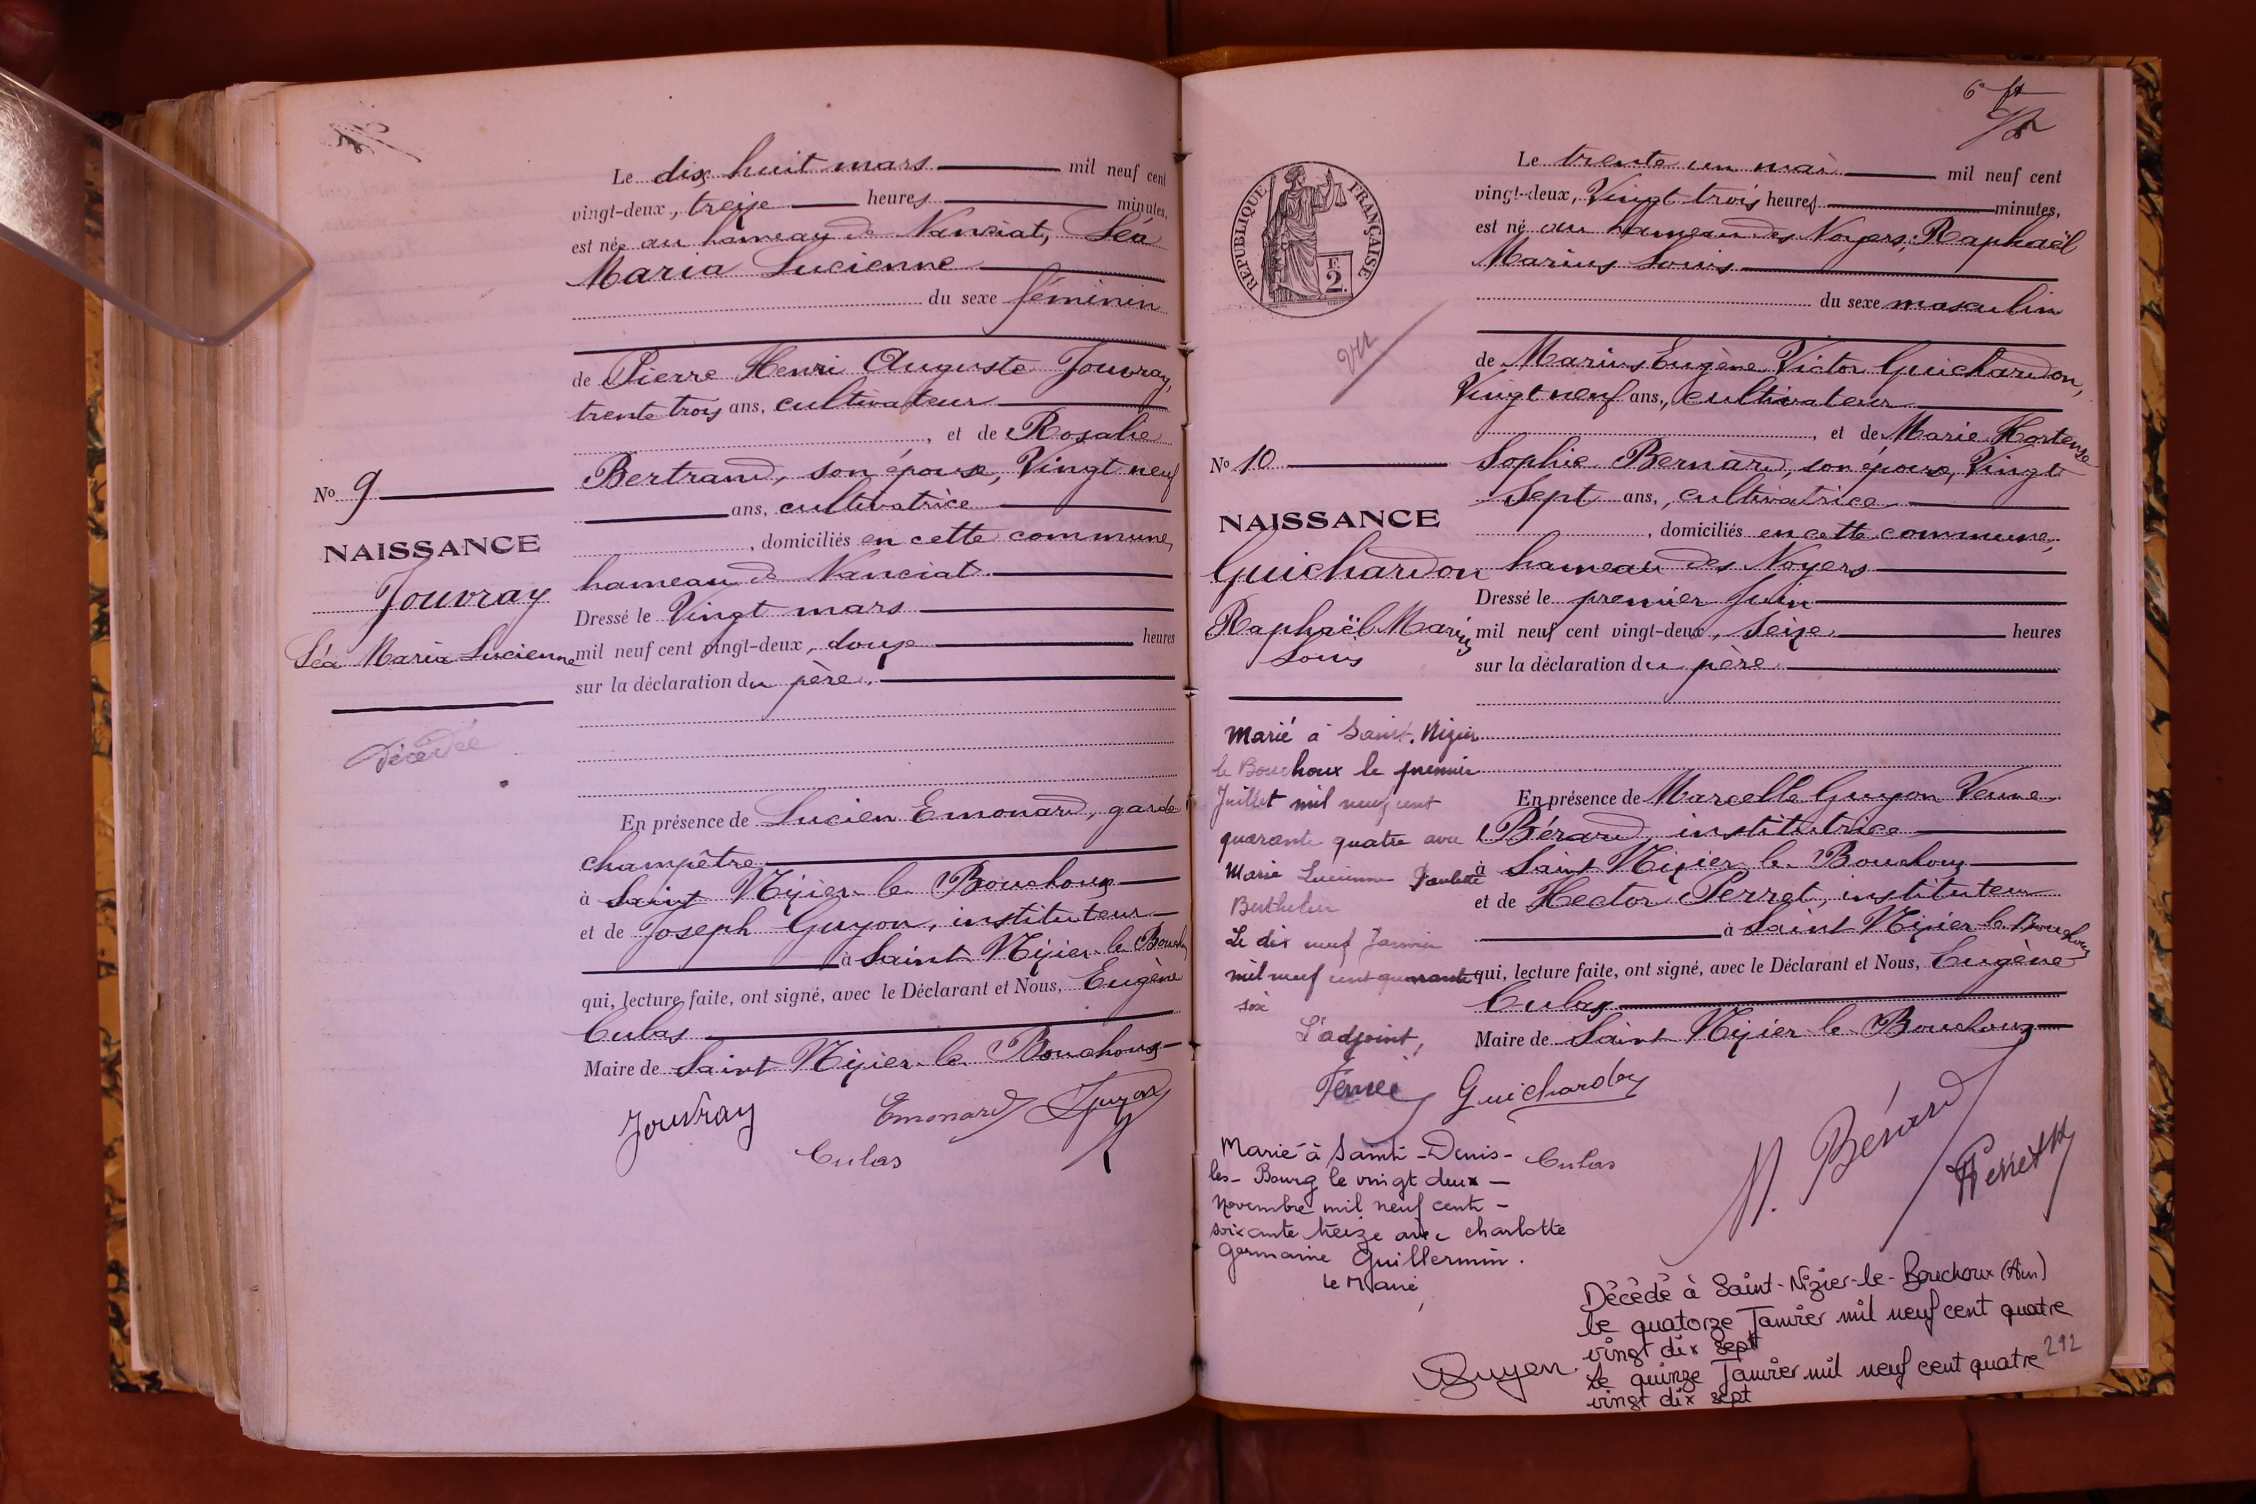 Le dix huit mars mil neuf cent
vingt-deux, treize heures minutes,
est née au hameau de Nanciat, Léa
Maria Lucienne
du sexe féminin
de Pierre Henri Auguste Jouvray,
trente trois ans, cultivateur
, et de Rosalie
Bertrand, son épouse, Vingt neuf
ans, cultivatrice
, domiciliés en cette commune,
hameau de Nanciat
Dressé le Vingt mars
mil neuf cent vingt-deux, douze heures
sur la déclaration du père.
En présence de Lucien Emonard, garde
champêtre
à Saint Nizier le Bouchoux
et de Joseph Guyon, instituteur
à Saint Nizier le Bouchoux
qui, lecture faite, ont signé, avec le Déclarant et Nous, Eugène
Culas
Maire de Saint Nizier le Bouchoux
Jouvray
Emonard
Guyon
Culas
No 9
NAISSANCE
Jouvray
Léa Maria Lucienne
Décédée
6e ft
Le trente un mai mil neuf cent
vingt-deux, Vingt trois heures minutes,
est né au hameau des Noyers, Raphaël
Marius Louis
du sexe masculin
de Marius Eugène Victor Guichardon,
Vingt neuf ans, cultivateur
, et de Marie Hortense
Sophie Bernard, son épouse, Vingt
Sept ans, cultivatrice
, domiciliés en cette commune,
hameau des Noyers
Dressé le premier Juin
mil neuf cent vingt-deux, Seize heures
sur la déclaration du père
En présence de Marcelle Guyon Veuve
Bérard, institutrice
à Saint Nizier le Bouchoux
et de Hector Perret, instituteur
à Saint Nizier le Bouchoux
qui, lecture faite, ont signé, avec le Déclarant et Nous, Eugène
Culas
Maire de Saint Nizier le Bouchoux
Guichardon
Culas
M. Bérard
HPerret
REPUBLIQUE FRANÇAISE
F.
2.
vu
No 10
NAISSANCE
Guichardon
Raphaël Marius
Louis
Marié à Saint. Nizier
le Bouchoux le premier
Juillet mil neuf cent
quarante quatre avec
Marie Lucienne Paulette
Berthelier
Le dix neuf Janvier
mil neuf cent quarante
six
L'adjoint,
Marié à Saint-Denis-
les-Bourg le vingt deux
Novembre mil neuf cent
soixante treize avec Charlotte
Germaine Guillermin.
Le Maire,
Guyon
Décédé à Saint-Nizier-le-Bouchoux (Ain)
le quatorze Janvier mil neuf cent quatre
vingt dix sept
Le quinze Janvier mil neuf cent quatre
vingt dix sept
292